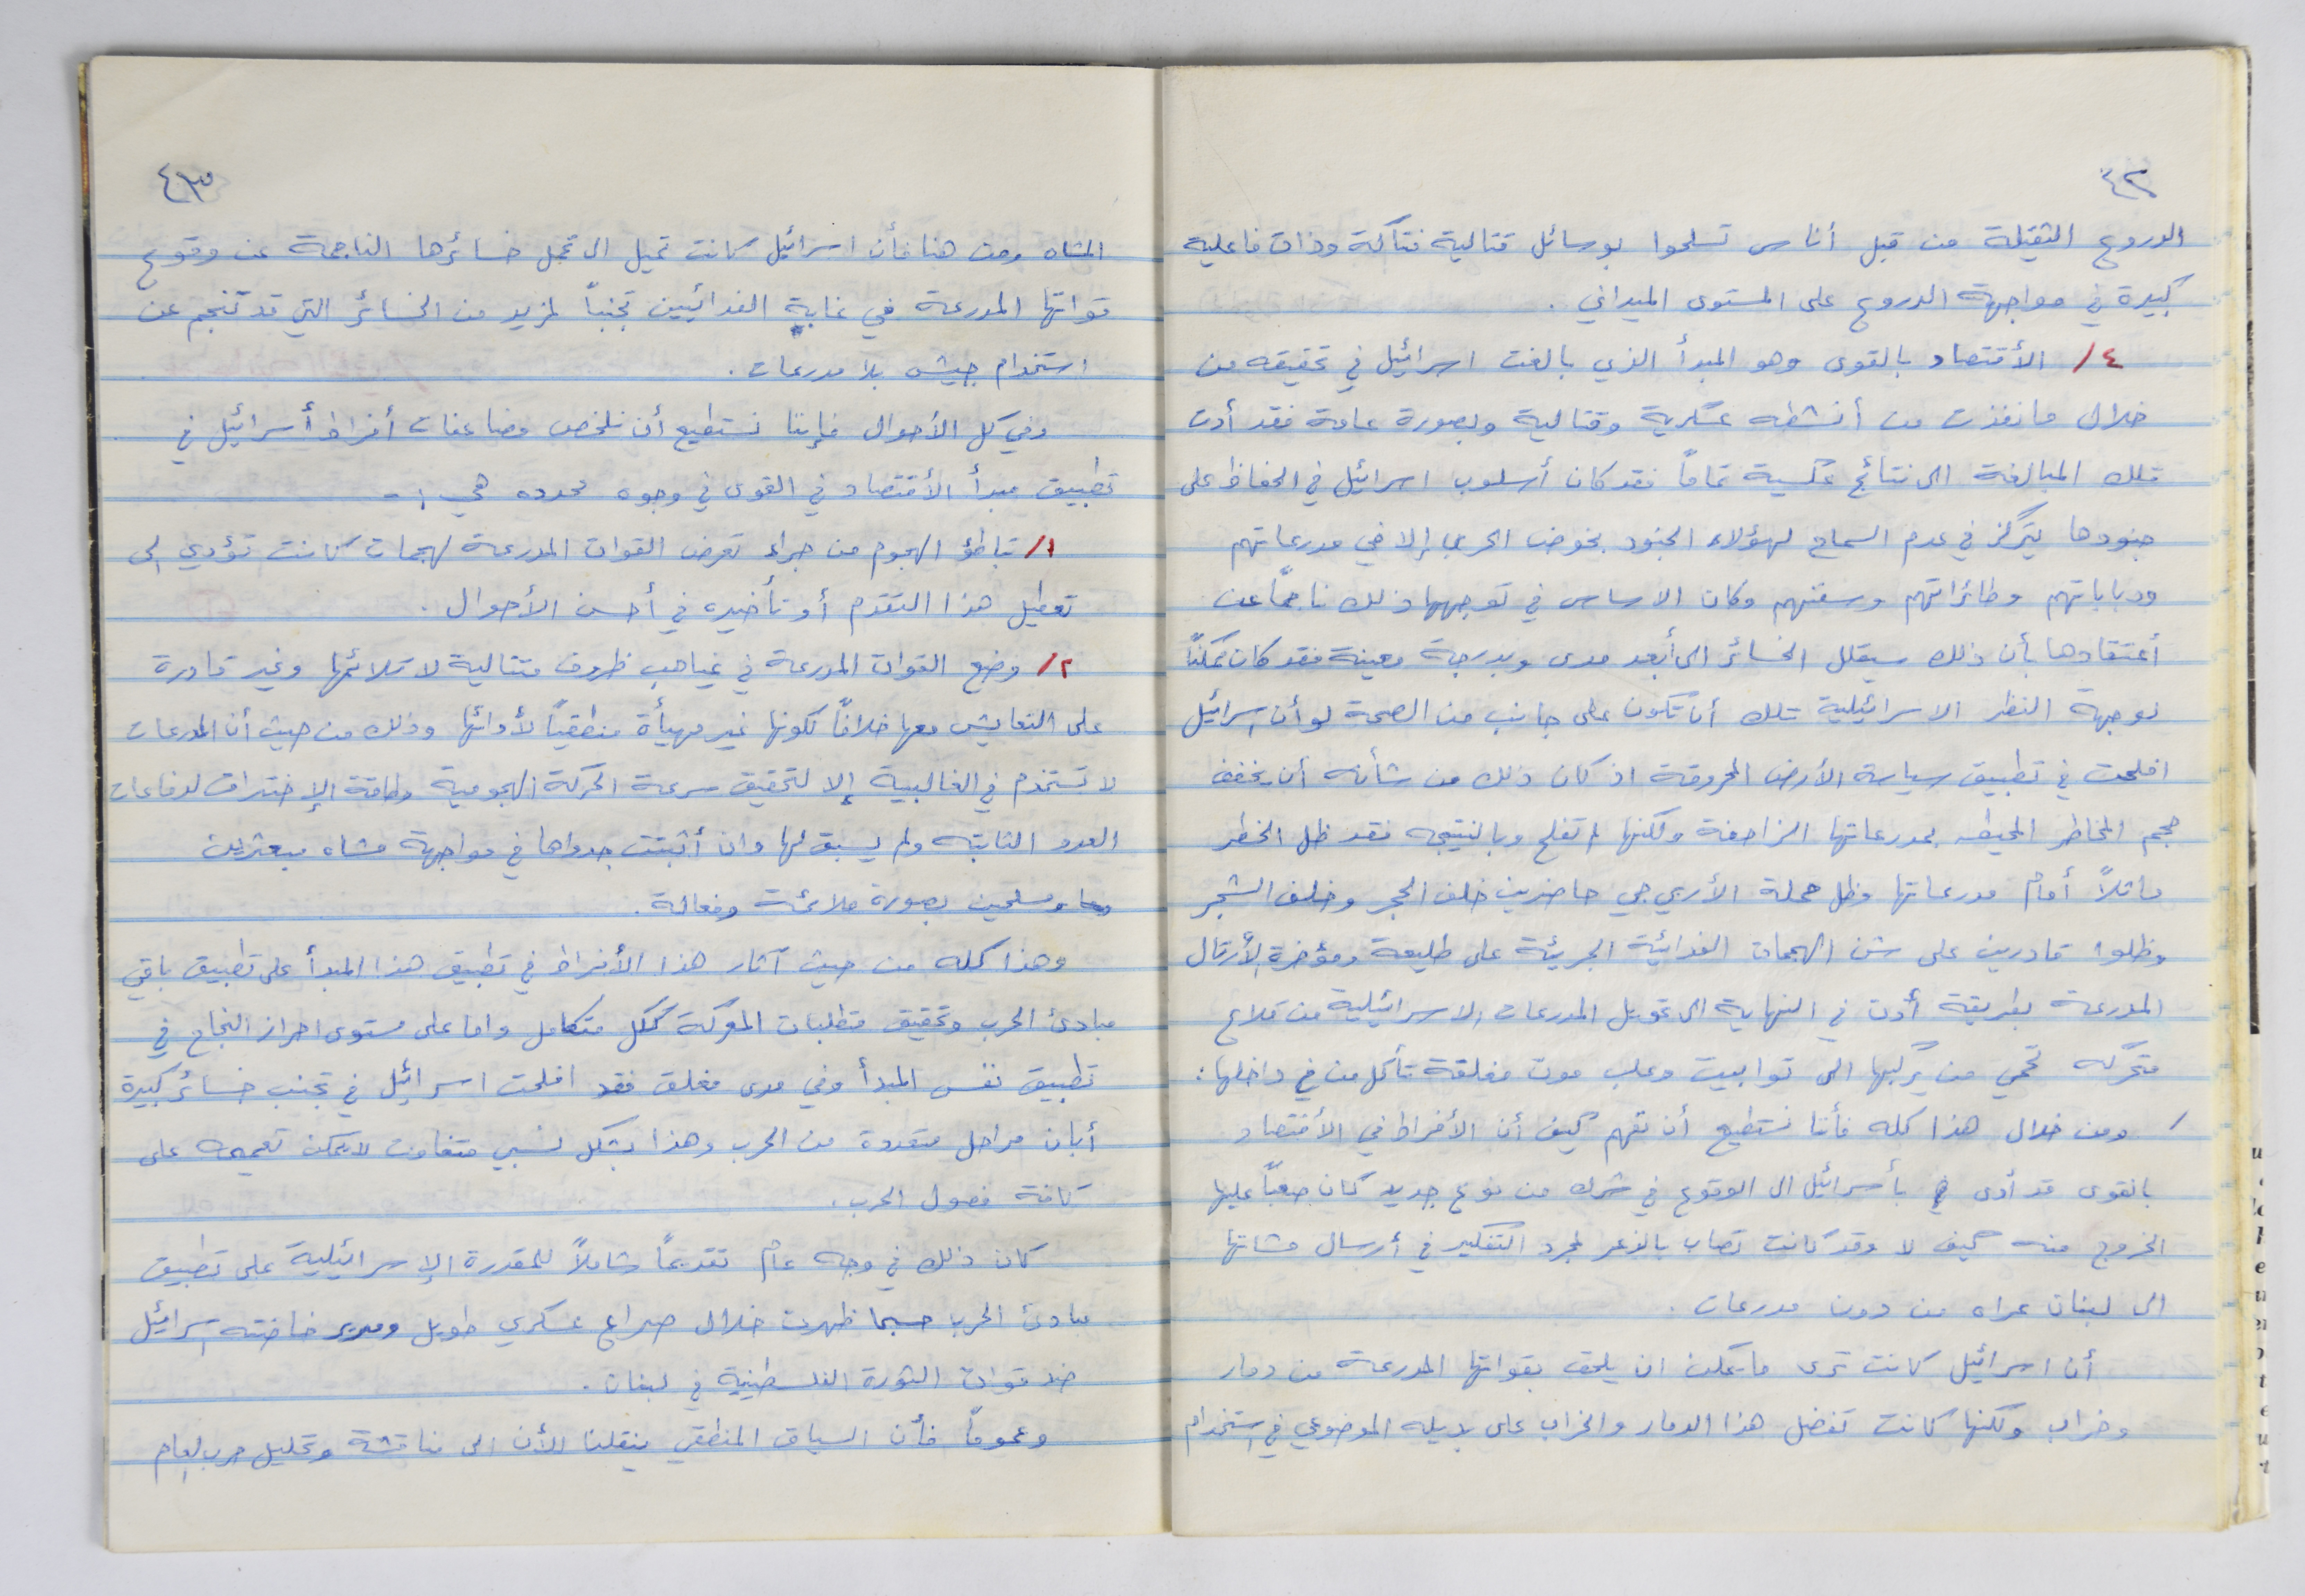 ٤٢
الدروع الثقيلة من قبل أناس تسلحوا بوسائل قتالية فتاكة وذات فاعلية
كبيرة في مواجهة الدروع على المستوى الميداني .
٤/ الأقتصاد بالقوى وهو المبدأ الذي بالغت اسرائيل في تحقيقه من
خلال ما نفذت من أنشطه عسكرية وقتالية وبصورة عامة فقد أدت
تلك المبالغة الى نتائج عكسية تماماً فقد كان أسلوب اسرائيل في الحفاظ على
جنودها يتركز في عدم السماح لهؤلاء الجنود بخوض الحرب إلا في مدرعاتهم
ودباباتهم وطائراتهم وسفنهم وكان الاساس في توجهها ذلك ناجماً عن
أعتقادها بأن ذلك سيقلل الخسائر الى أبعد مدى وبدرجة معينة فقد كان ممكناً
لوجهة النظر الاسرائيلية تلك أن تكون على جانب من الصحة لو أن اسرائيل
افلحت في تطبيق سياسة الأرض المحروقة اذ كان ذلك من شأنه أن يخفف
حجم المخاطر المحيطه بمدرعاتها الزاحفة ولكنها لم تفلح وبالنتيجه فقد ظل الخطر
ماثلاً أمام مدرعاتها وظل حملة الأربي جي حاضرين خلف الحجر وخلف الشجر
وظلوا قادرين على شن الهجمات الفدائية الجريئة على طليعة ومؤخرة الأرتال
المدرعة بطريقة أدت في النهاية الى تحويل المدرعات الاسرائيلية من قلاع
متحركه تحمي من يركبها الى توابيت وعلب موت مغلقة تأكل من في داخلها :
ومن خلال هذا كله فأننا نستطيع أن نفهم كيف أن الأفراط في الأقتصاد
بالقوى قد أدى بأسرائيل الى الوقوع في شرك من نوع جديد كان صعباً عليها
الخروج منه كيف لا وقد كانت تصاب بالذعر لمجرد التفكير في أرسال مشاتها
الى لبنان عراه من دون مدرعات .
أن اسرائيل كانت ترى ما يمكن ان يلحق بقواتها المدرعة من دمار
وخراب ولكنها كانت تفضل هذا الدمار والخراب على بديله الموضوعي في استخدام
٤٣
المشاه ومن هنا فأن اسرائيل كانت تميل الى تحمل خسائرها الناجمة عن وقوع
قواتها المدرعة في غابة الفدائيين تجنباً لمزيد من الخسائر التي قد تنجم عن
استخدام جيش بلا مدرعات .
وفي كل الأحوال فإننا نستطيع أن نلخص مضاعفات أفراط أسرائيل في
تطبيق مبدأ الأقتصاد في القوى في وجوه محدده هي :-
١/ تباطؤ الهجوم من جراء تعرض القوات المدرعة لهجمات كانت تؤدي الى
تعطيل هذا التقدم أو تأخيره في أحسن الأحوال .
٢/ وضع القوات المدرعة في غياهب ظروف قتالية لا تلائمها وغير قادرة
على التعايش معها خلافاً لكونها غير مهيأة منطقياً لأدائها وذلك من حيث أن المدرعات
لا تستخدم في الغالبية إلا لتحقيق سرعة الحركة الهجومية وطاقة الإختراق لدفاعات
العدو الثابته ولم يسبق لها وان أثبتت جدواها في مواجهة مشاه مبعثرين
ومسلحين بصورة ملائمة وفعالة .
وهذا كله من حيث آثار هذا الأفراط في تطبيق هذا المبدأ على تطبيق باقي
مبادئ الحرب وتحقيق متطلبات المعركة ككل متكامل واما على مستوى احراز النجاح في
تطبيق نفس المبدأ وفي مدى مغلق فقد افلحت اسرائيل في تجنب خسائر كبيرة
أبان مراحل متعددة من الحرب وهذا بشكل نسبي متفاوت لا يمكن تعميمه على
كافة فصول الحرب .
كان ذلك في وجه عام تقديماً شاملاً للمقدرة الإسرائيلية على تطبيق
مبادئ الحرب حسبما ظهرت خلال صراع عسكري طويل ومرير خاضته اسرائيل
ضد قوات الثورة الفلسطينية في لبنان .
وعموماً فأن السياق المنطقي ينقلنا الأن الى مناقشة وتحليل حرب لعام